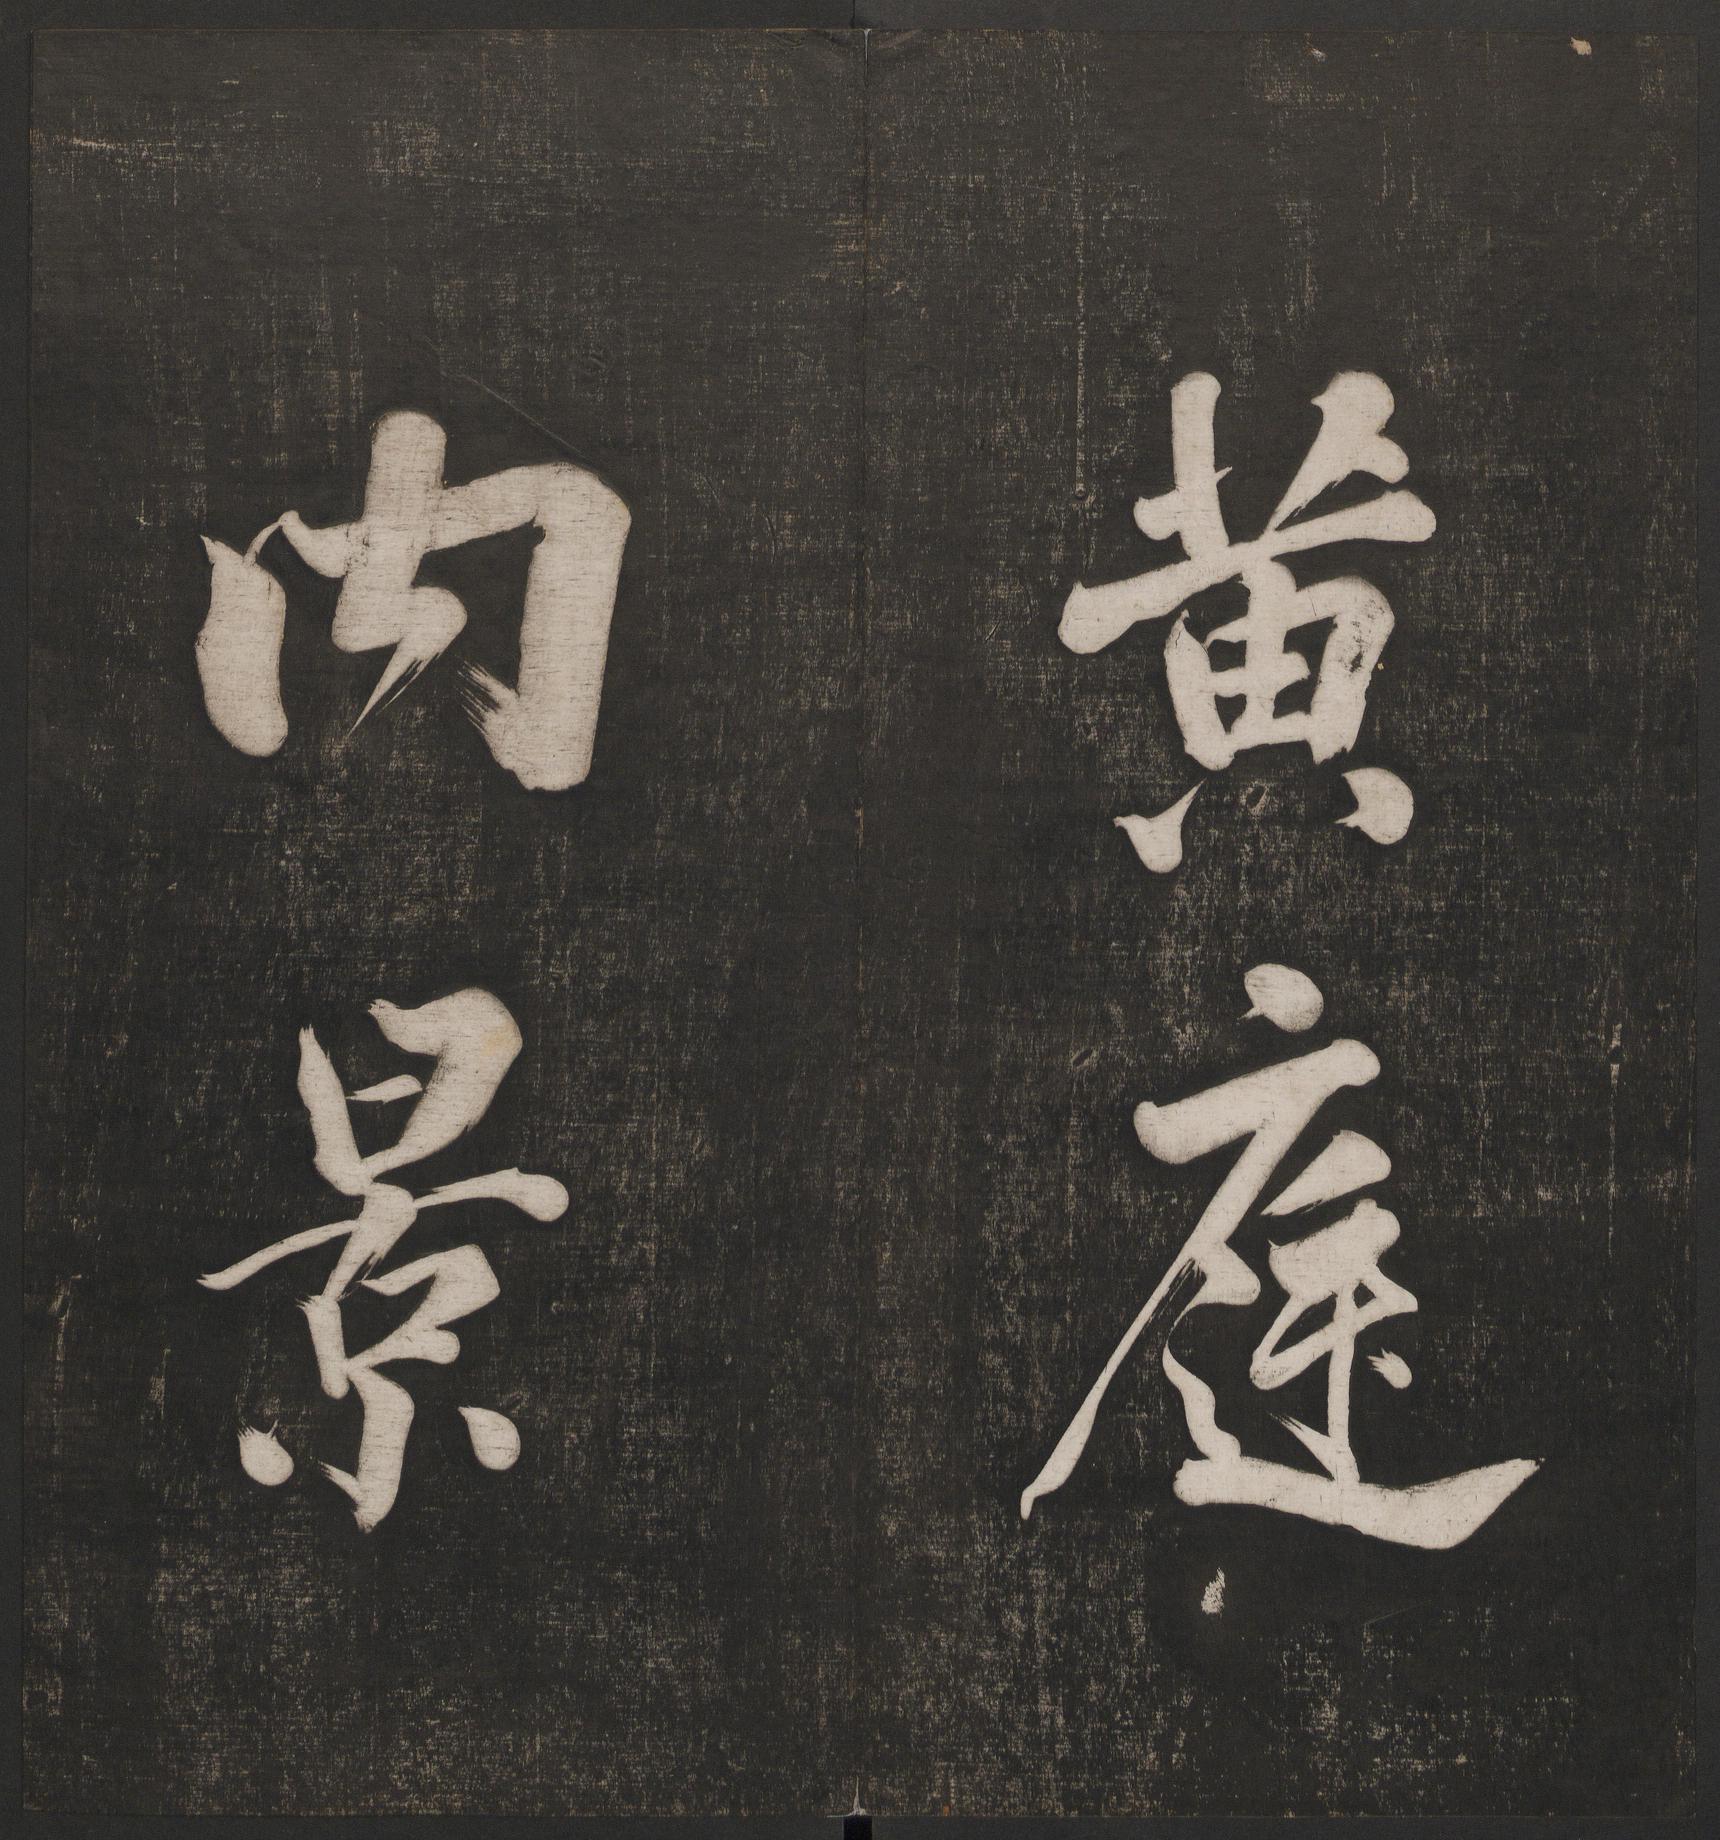 黄庭
内景